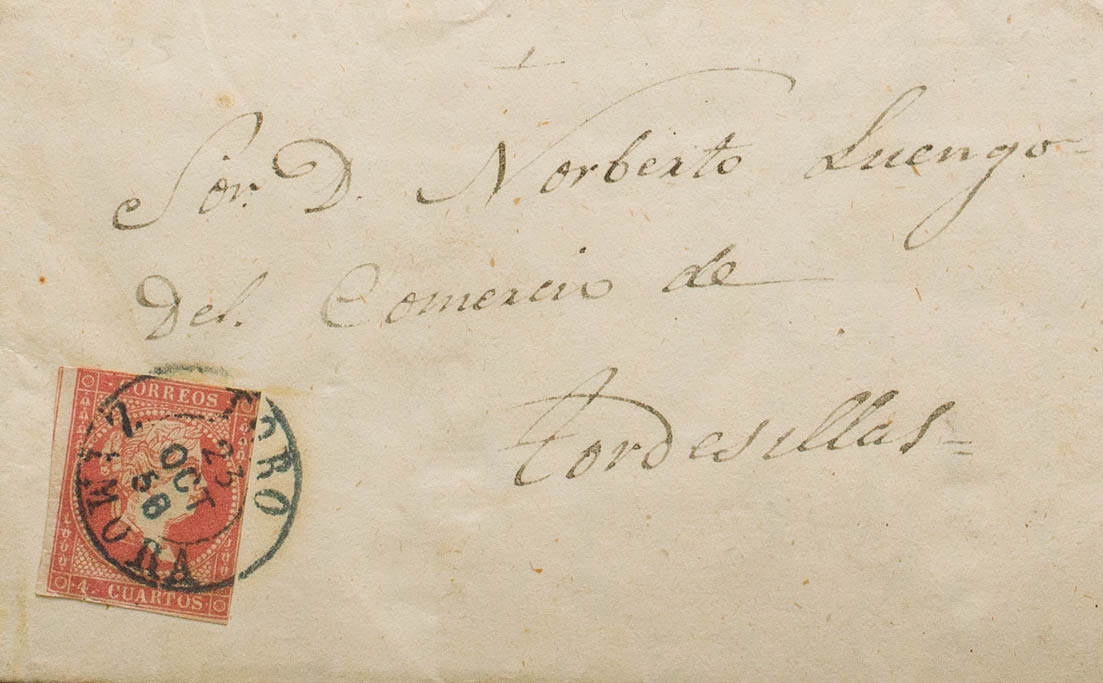 Sor. D. Norberto Luengo
Del. Comercio de
Tordesillas
CORREOS
4. CUARTOS
TORO
23
OCT
58
ZAMORA